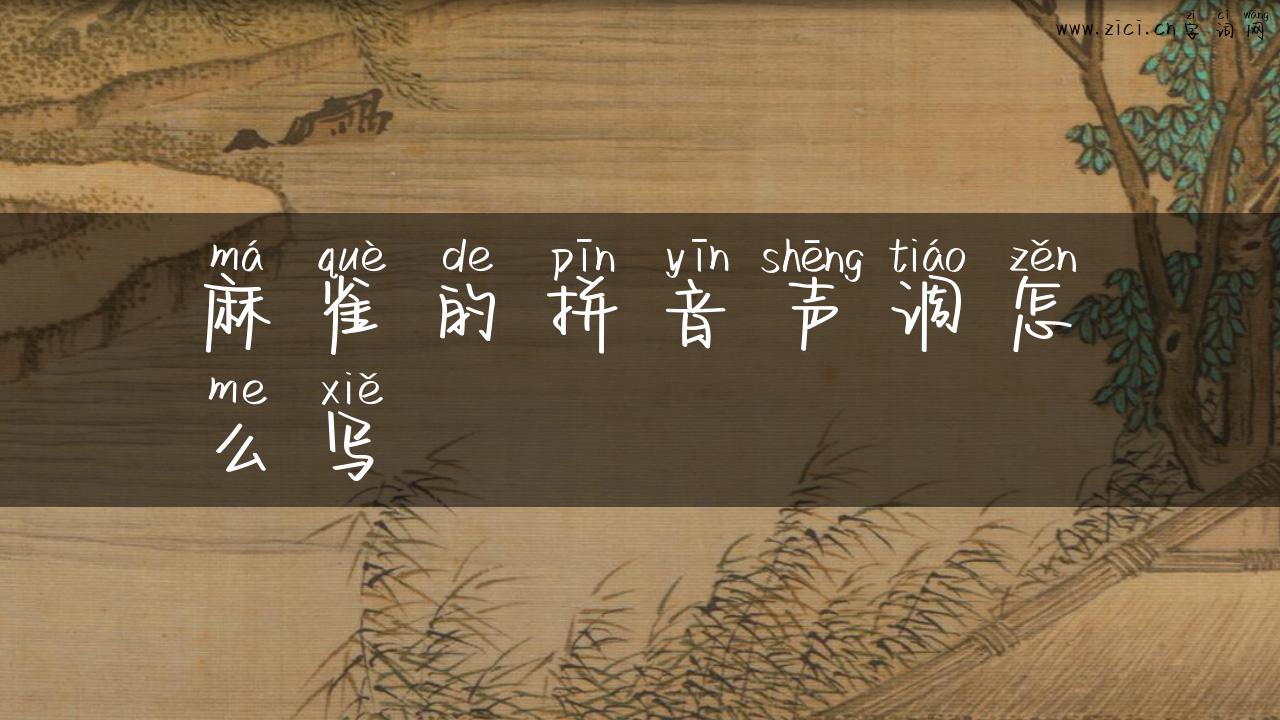 zì cí wǎng
www.zici.cn字词网
má què de pīn yīn shēng tiáo zěn
麻雀的拼音声调怎
me xiě
么写